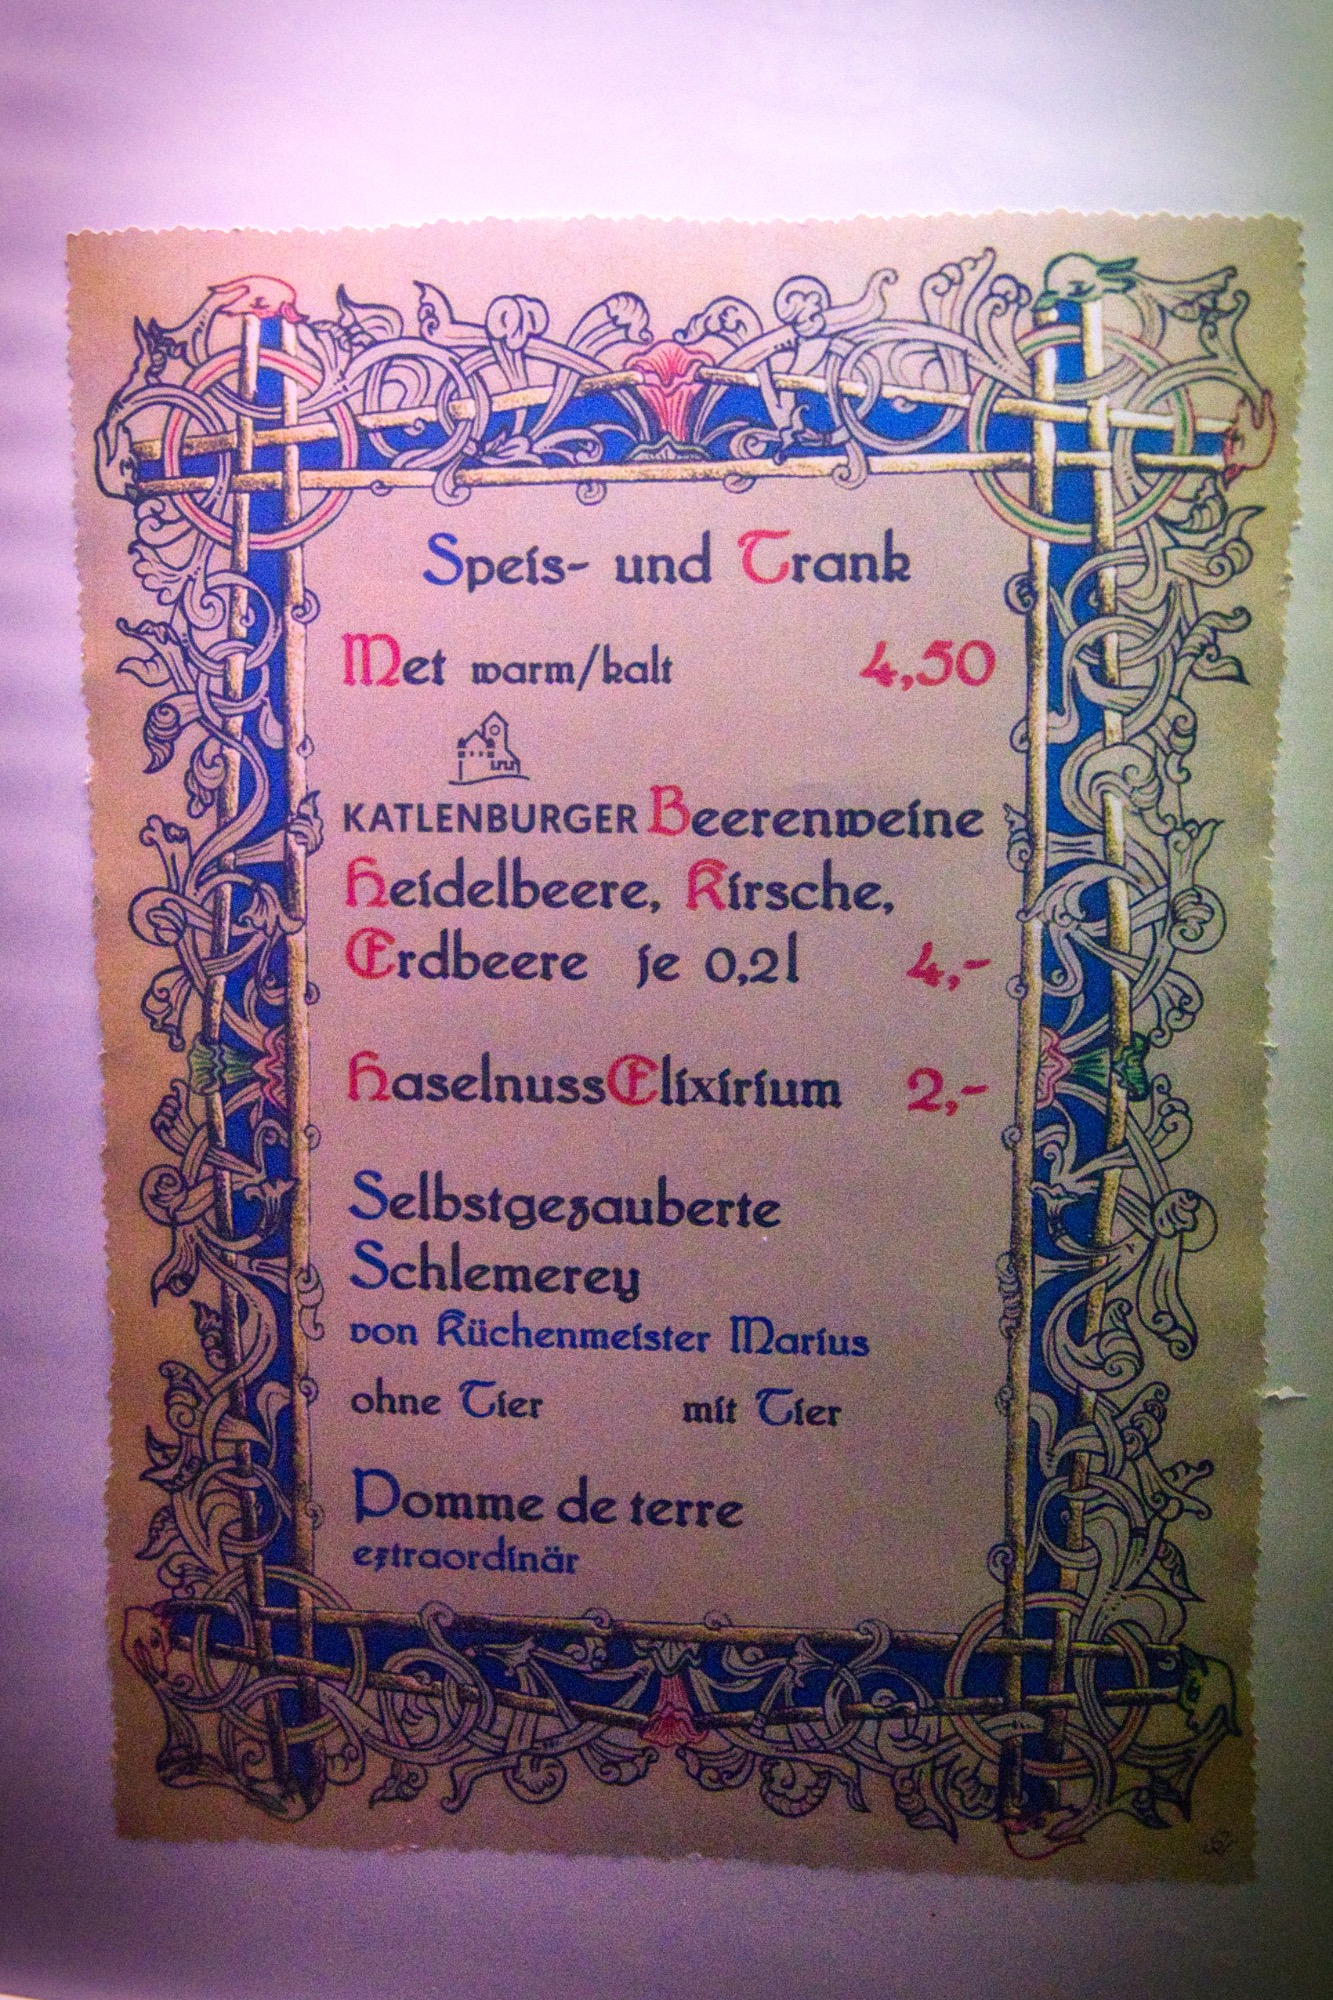 Speis- und Trank
Met warm/kalt 4,50
KATLENBURGER Beerenweine
Heidelbeere, Kirsche,
Erdbeere je 0,2l 4,-
HaselnussElixirium 2,-
Selbstgezauberte
Schlemerey
von Küchenmeister Marius
ohne Tier mit Tier
Pomme de terre
extraordinär